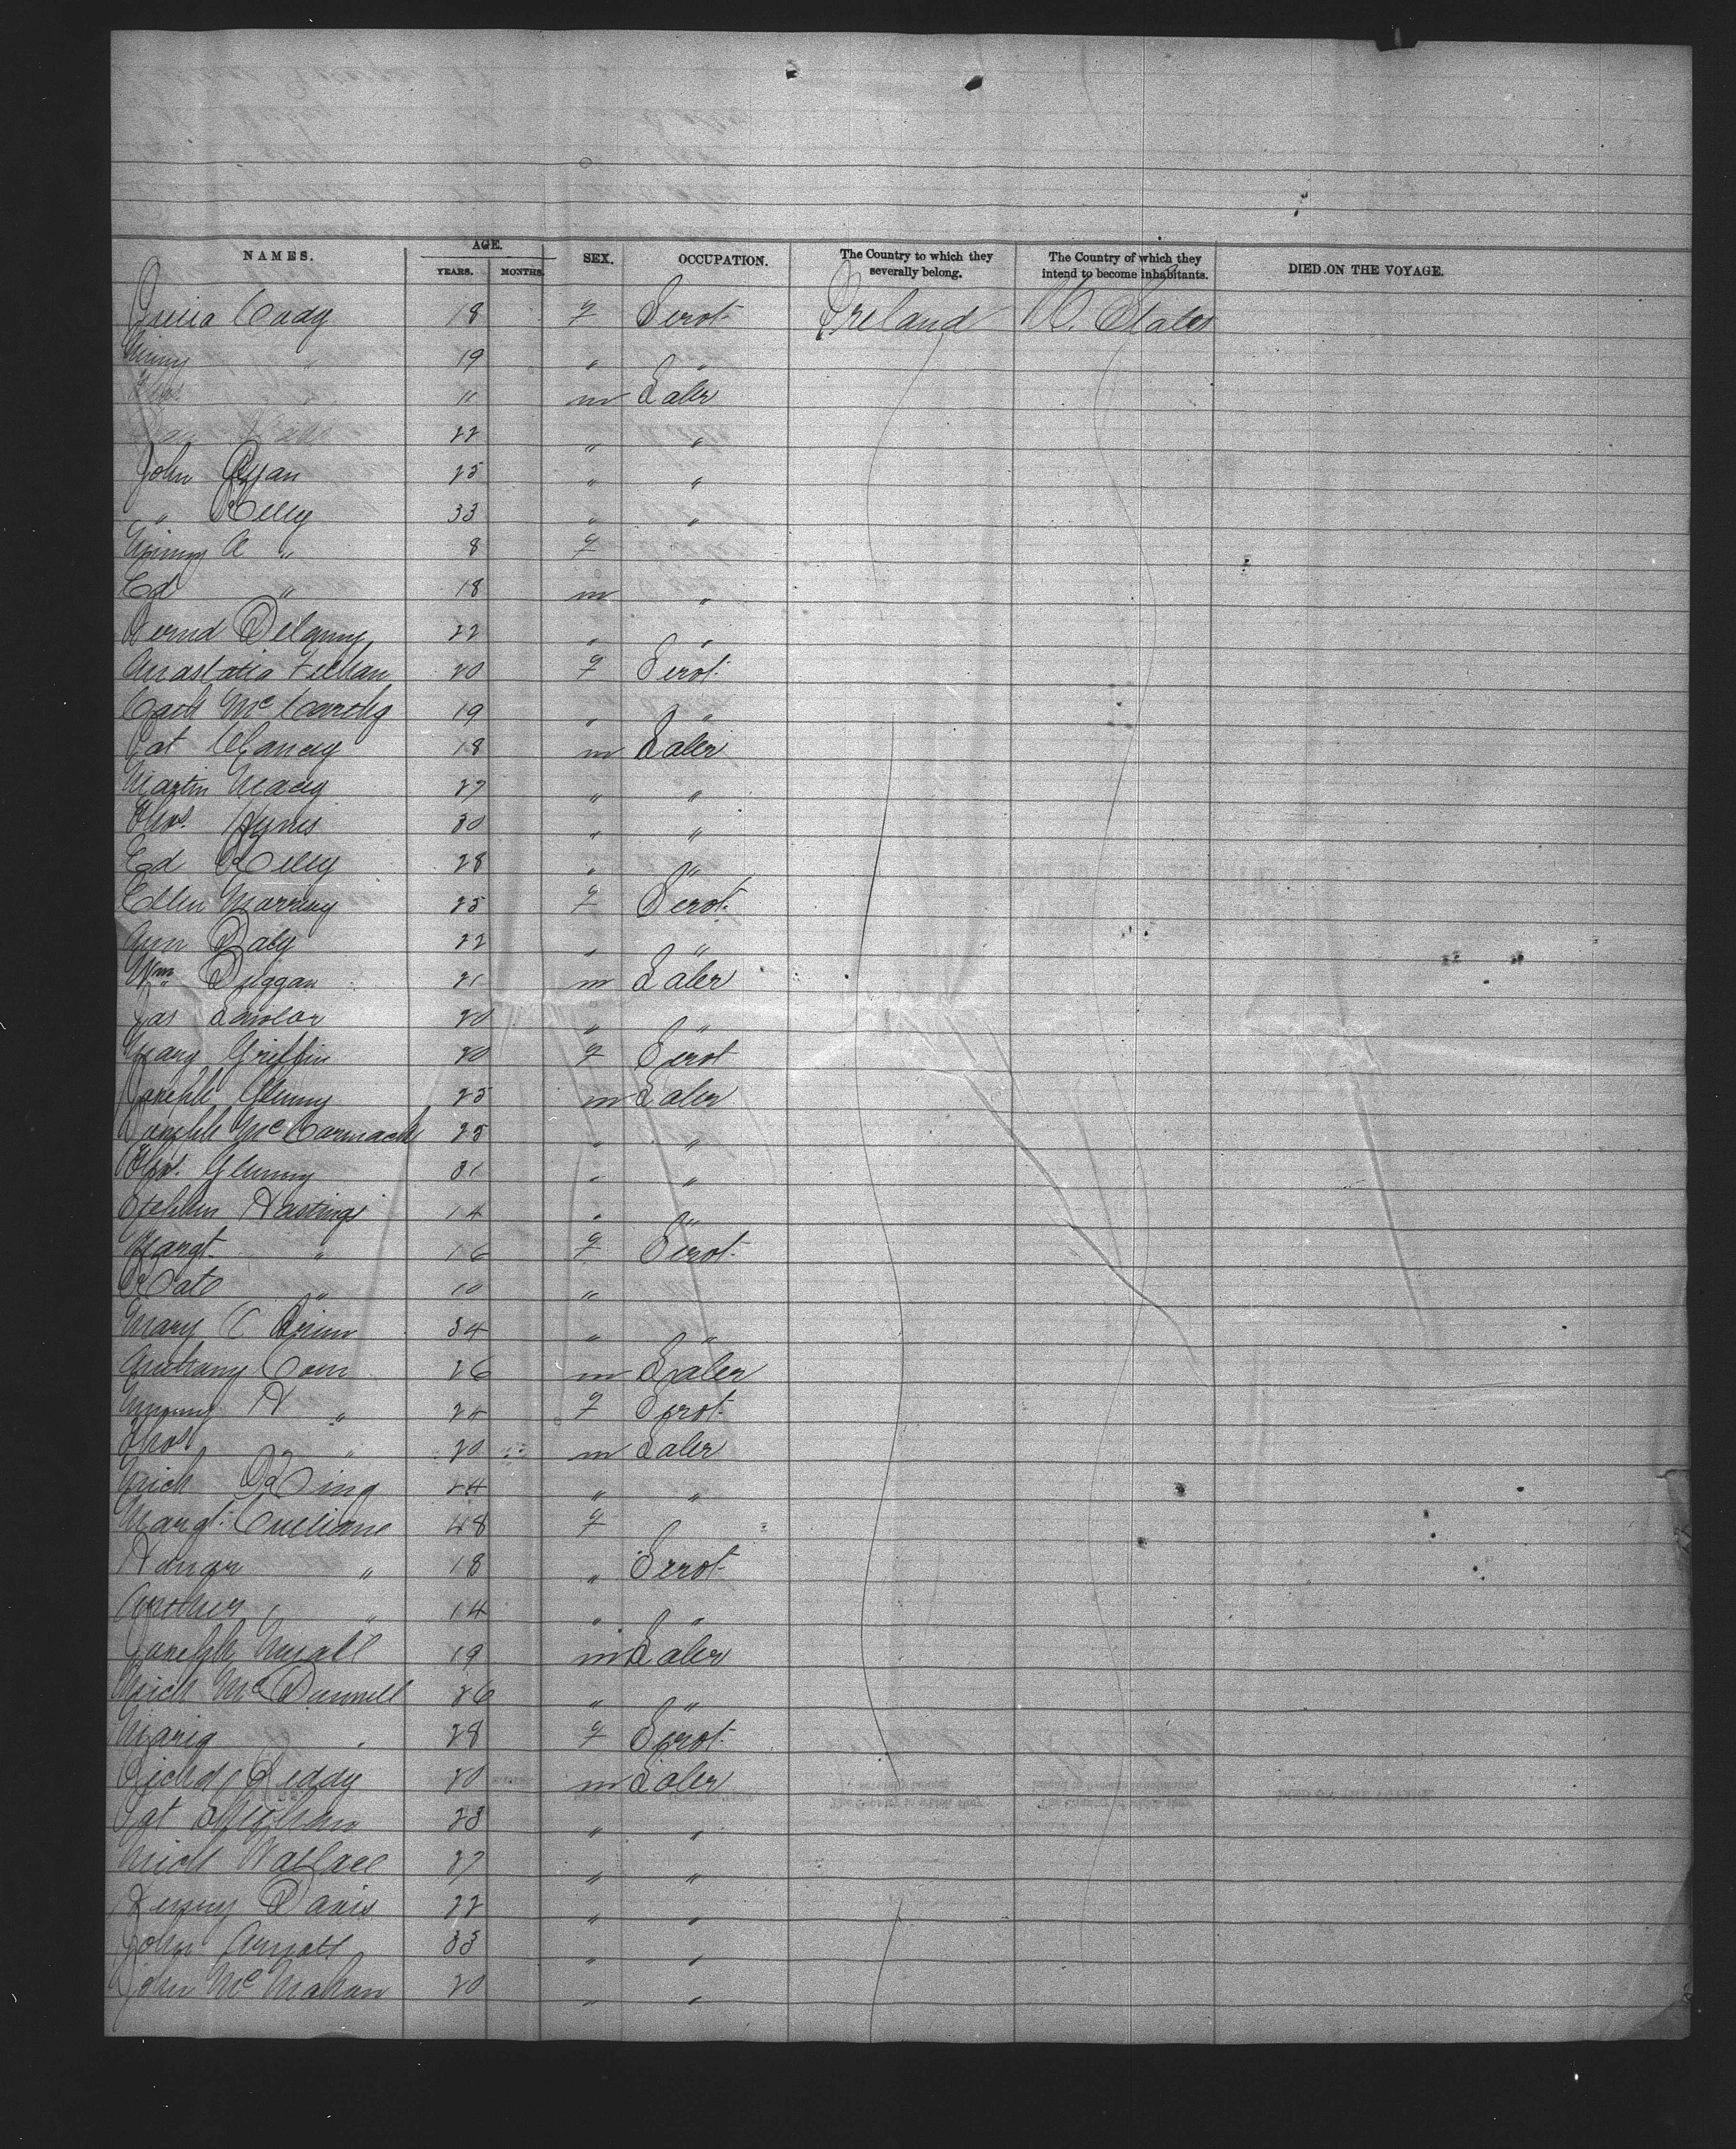 NAMES. AGE. YEARS. MONTHS. SEX. OCCUPATION. The Country to which they severally belong. The Country of which they intend to become inhabitants. DIED ON THE VOYAGE.
Julia Cody 18 f Servt. Ireland U. States
Winny " 19 " "
Thos " 11 m Labr
22 " "
John Ryan 25 " "
" Kelly 33 " "
Winny A " 8 f
Ed " 18 m "
Bernd Delaney 22 " "
Anastatia Feehan 20 f Servt.
Cath McCarthy 19 " "
Pat Clancy 18 m Labr
Martin Neary 27 " "
Thos. Hynes 30 " "
Ed Kelly 28 " "
Ellen 25 f Servt.
Ann Daly 22 " "
Wm Duggan 21 m Labr
Jas Lawlor 20 " "
Mary Griffin 20 f Servt
Joseph Glenny 25 m Labr
Joseph McCormack 25 " "
Thos. Glenny 31 " "
Stephen Hastings 14 " "
Margt. " 16 f Servt.
Kate " 10 "
Mary 34 " "
Anthony 26 m Labr
" f Servt.
Thos " 20 m Labr
Mich King 24 " "
Margt. 48 f
" 18 " Servt.
" 14 " "
Joseph 19 m Labr
Mich 26 " "
Maria " 28 f Servt.
Richd Leddy 20 m Labr
Pat 23 " "
Mich Wallace 27 " "
Henry Davis 22 " "
John 33 " "
John McMahon 20 " "